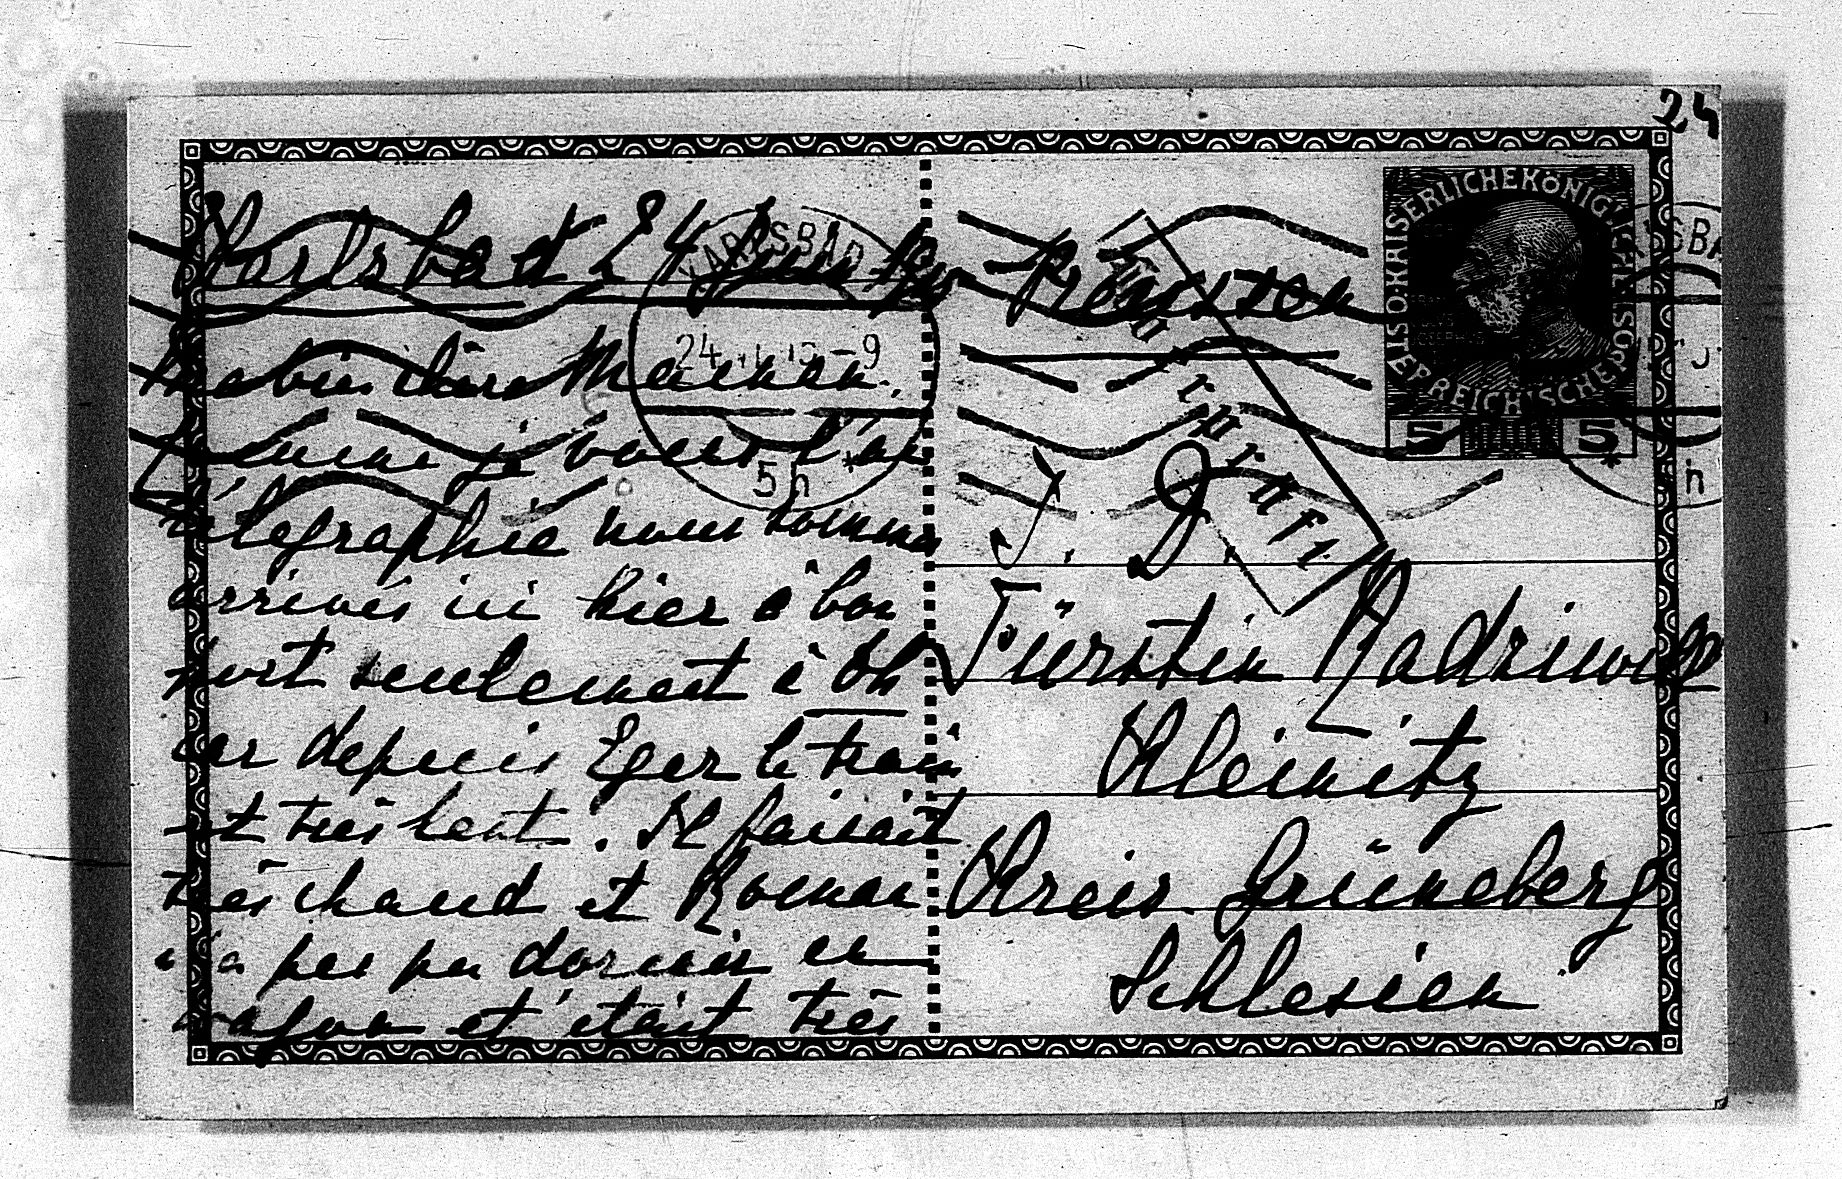 24
Karlsbad 24 Juin
Ma bien chère Maman,
Comme je vous l'ai
télégraphié nous sommes
arrivés ici hier à bon
port seulement à 8h
car depuis Eger le train
est très lent. Il faisait
très chaud et Roman
n'a pas pu dormir en
wagon et était très
KARLSBAD
24
-9
5h *
Preussen
KAISERLICHE KÖNIGLICHE ÖSTERREICHISCHE POST
5 5
J. D.
Fürstin Radziwill
Kleinitz
Kreis Grüneberg
Schlesien